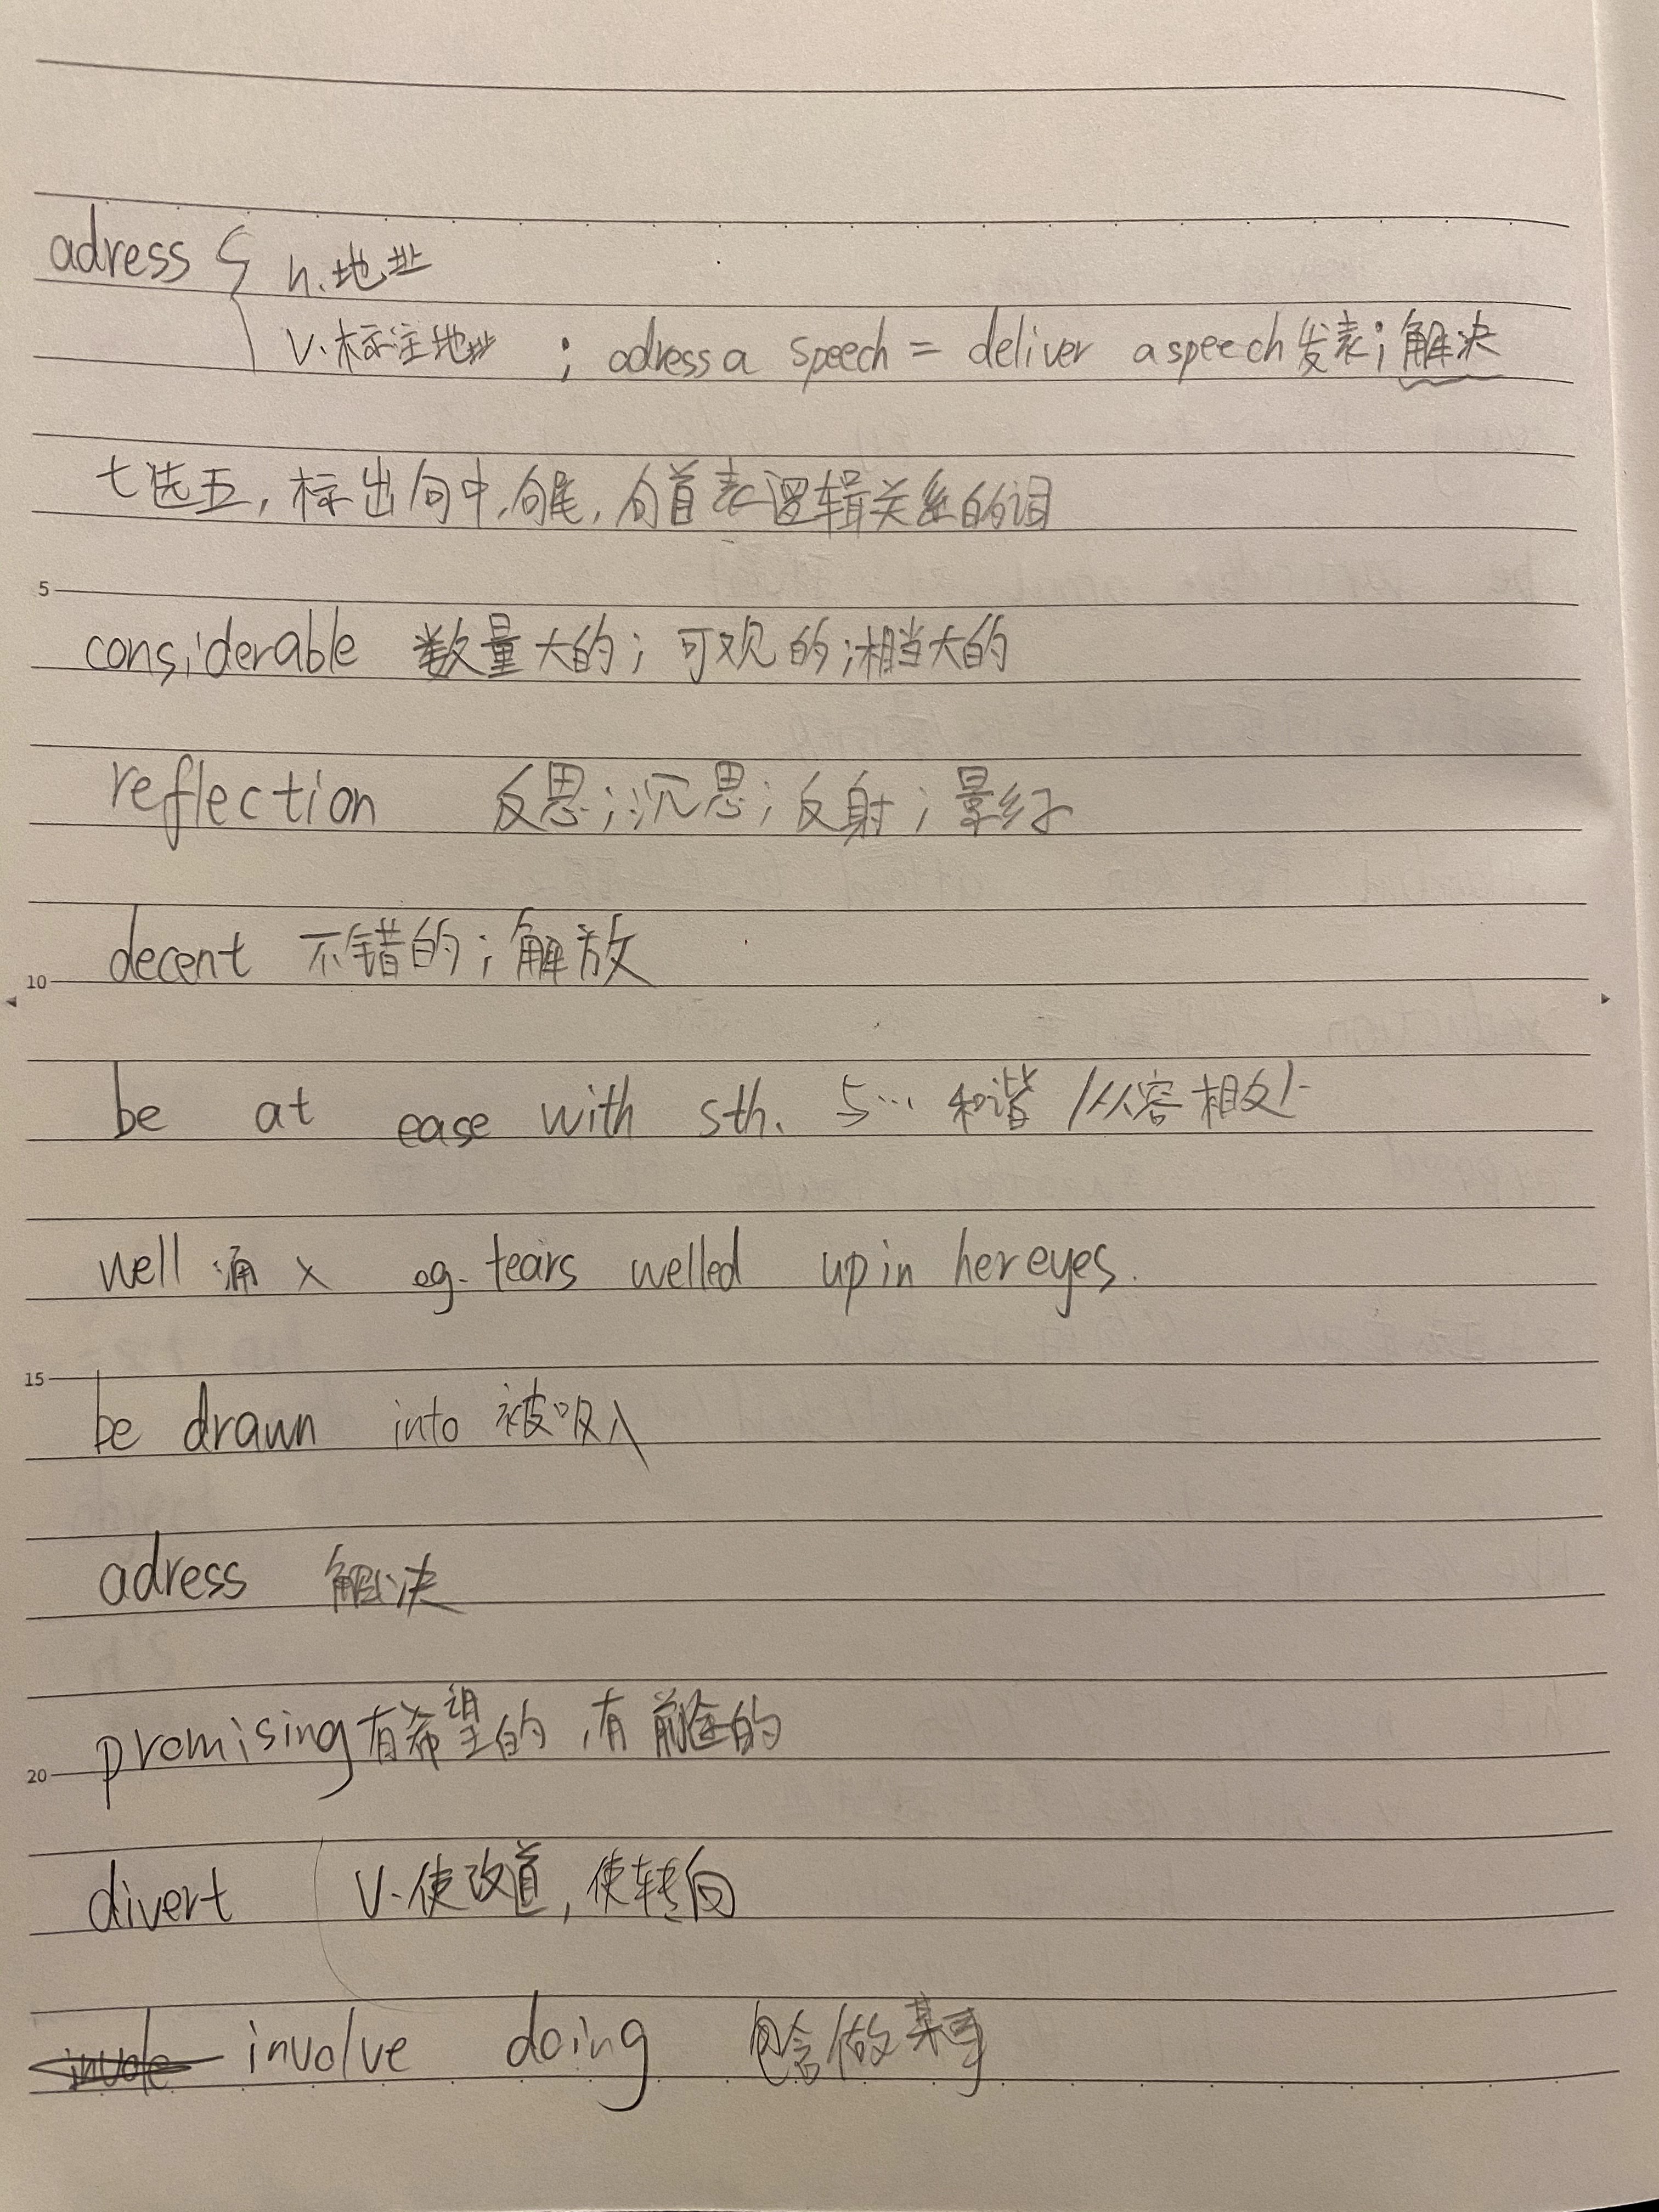 adress { n.地址
v.标注地址 ; adress a speech = deliver a speech 发表；解决
七选五，标出句中，句尾，句首表逻辑关系的词
5
considerable 数量大的；可观的；相当大的
reflection 反思；沉思；反射；影子
10
decent 不错的；
be at ease with sth. 与… 和谐/公密相处
well 涌 x eg. tears welled up in her eyes.
15
be drawn into 被吸入
adress 解决
20
promising 有希望的，有前途的
divert v.使改道，使转向
involve doing 包含做某事